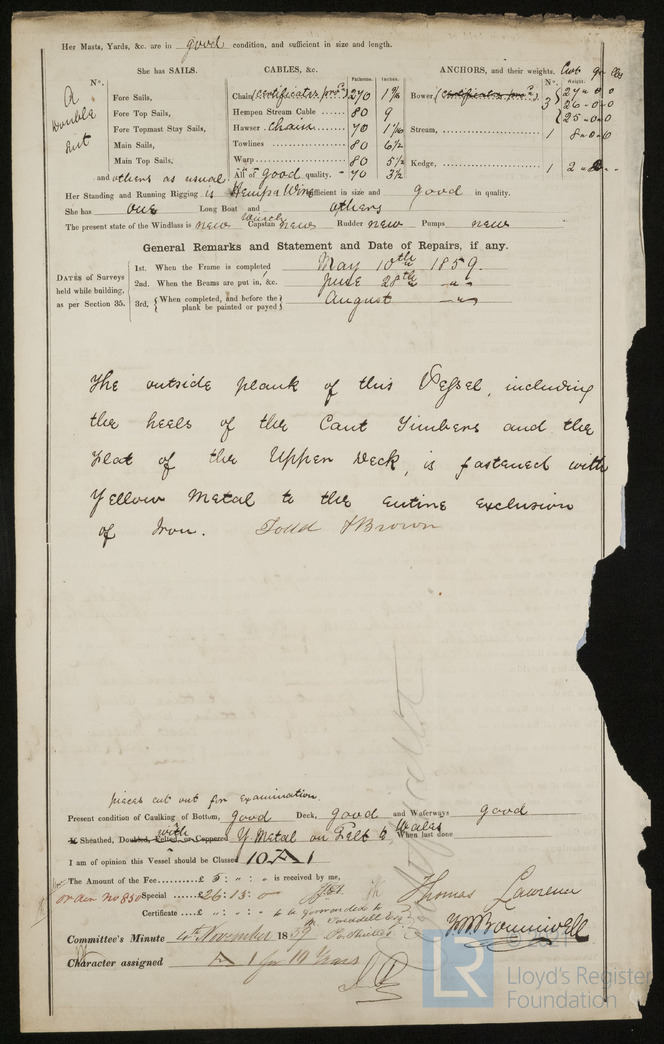 Her Masts, Yards, &c. are in good condition, and sufficient in size and length.
She has SAILS.
N°.
A
Double
Suit
Fore Sails,
Fore Top Sails,
Fore Topmast Stay Sails,
Main Sails,
Main Top Sails,
and others as usual
CABLES, &c.
Fathoms. Inches.
Chain (Certificates pro.d) 270 1 9/16
Hempen Stream Cable 80 9
Hawser chain 70 1 1/16
Towlines 80 6½
Warp 80 5½
All of good quality. 70 3½
ANCHORS, and their weights. Cwt qr lbs
N°. Weight.
Bower, (Certificates pro.d) 3 27 - 0 - 0
26 - 0 - 0
25 - 0 - 0
Stream, 1 8 - 0 - 0
Kedge, 1 2
Her Standing and Running Rigging is Hemp & Wire sufficient in size and good in quality.
She has one Long Boat and others
The present state of the Windlass is new Capstan Winch new Rudder new Pumps new
General Remarks and Statement and Date of Repairs, if any.
DATES of Surveys
held while building,
as per Section 35.
1st. When the Frame is completed May 10th 1859.
2nd. When the Beams are put in, &c. June 28th " "
3rd. { When completed, and before the plank be painted or payed } August " "
The outside plank of this Vessel, including
the heels of the Cant Timbers and the
Flat of the Upper Deck, is fastened with
Yellow Metal to the entire exclusion
of Iron. Todd & Brown
pieces cut out for examination
Present condition of Caulking of Bottom, good Deck, good and Waterways good
Sheathed, Doubled, Felted, or Coppered with Y Metal on Felt to Wales When last done
I am of opinion this Vessel should be Classed 10 A 1
The Amount of the Fee £ 5 : " : " is received by me,
Special £26 : 15 : 0
Certificate £ " : " : " to be forwarded to
Thomas Lawrence
Committee's Minute 4th November 1859
Character assigned A 1 for 10 Years
LR
Lloyd's Register
Foundation